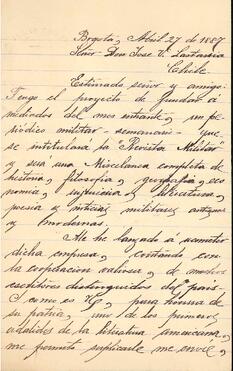 Bogotá, Abril 27 de 1887
Señor Don José V. Lastarria
Chile
Estimado señor y amigo:
Tengo el proyecto de fundar á
mediados del mes entrante, un pe-
riódico militar - semanario - que
se intitulará la Revista Militar
y será una Miscelanea completa de
historia, filosofia, geografia, eco-
nomia, literatura,
poesia é noticias militares antiguas
y modernas.
Me he lanzado á acometer
dicha empresa, contando con
la cooptacion valiosa, de muchos
escritores distinguidos del pais.
I como es U, para honra de
su patria, uno de los primeros
adalides de la literatura americana,
me permito suplicarle me envíe,